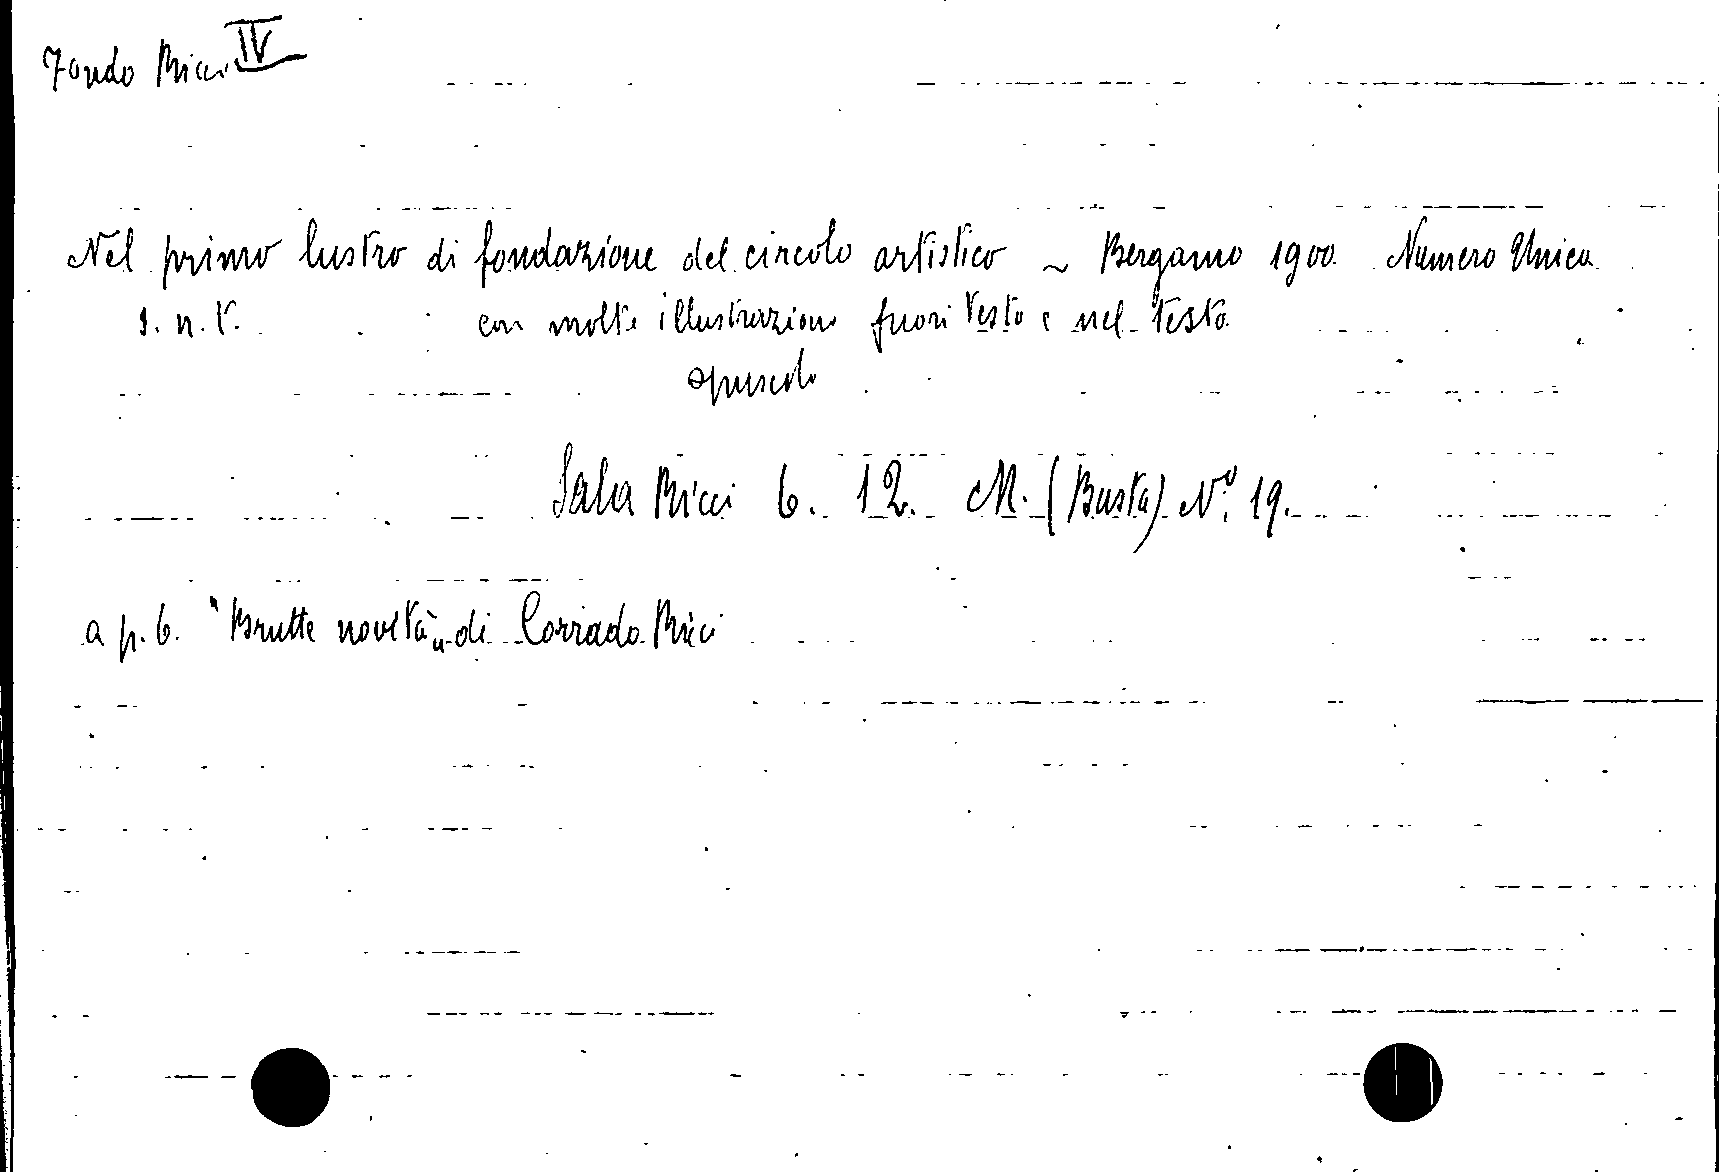 Fondo Ricci IV
Nel primo lustro di fondazione del circolo artistico ~ Bergamo 1900. Numero Unico
s. n. t. con molte illustrazioni fuori testo e nel testo
opuscolo
Sala Ricci 6. 12. M. (Busta) N.º 19.
a p. 6. "Brutte novità„ di Corrado Ricci